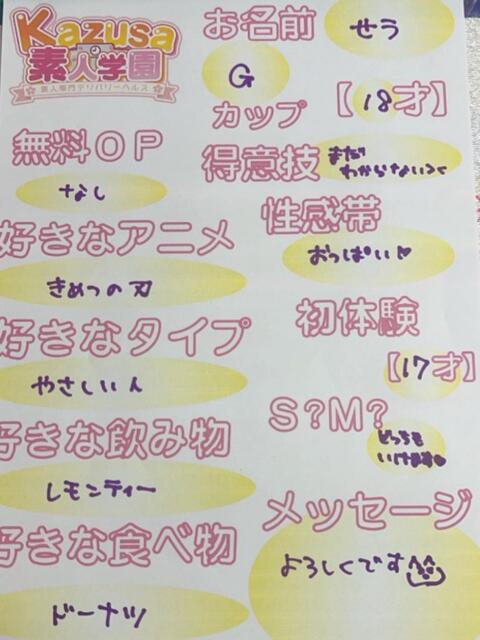 Kazusa
素人学園
素人専門デリバリーヘルス
お名前 せう
G カップ 【18才】
無料OP なし
得意技 まだ
わからないです
好きなアニメ きめつの刃
性感帯 おっぱい♡
好きなタイプ やさしい人
初体験 【17才】
好きな飲み物 レモンティー
S?M? どっちも
いけます♡
好きな食べ物 ドーナツ
メッセージ よろしくです